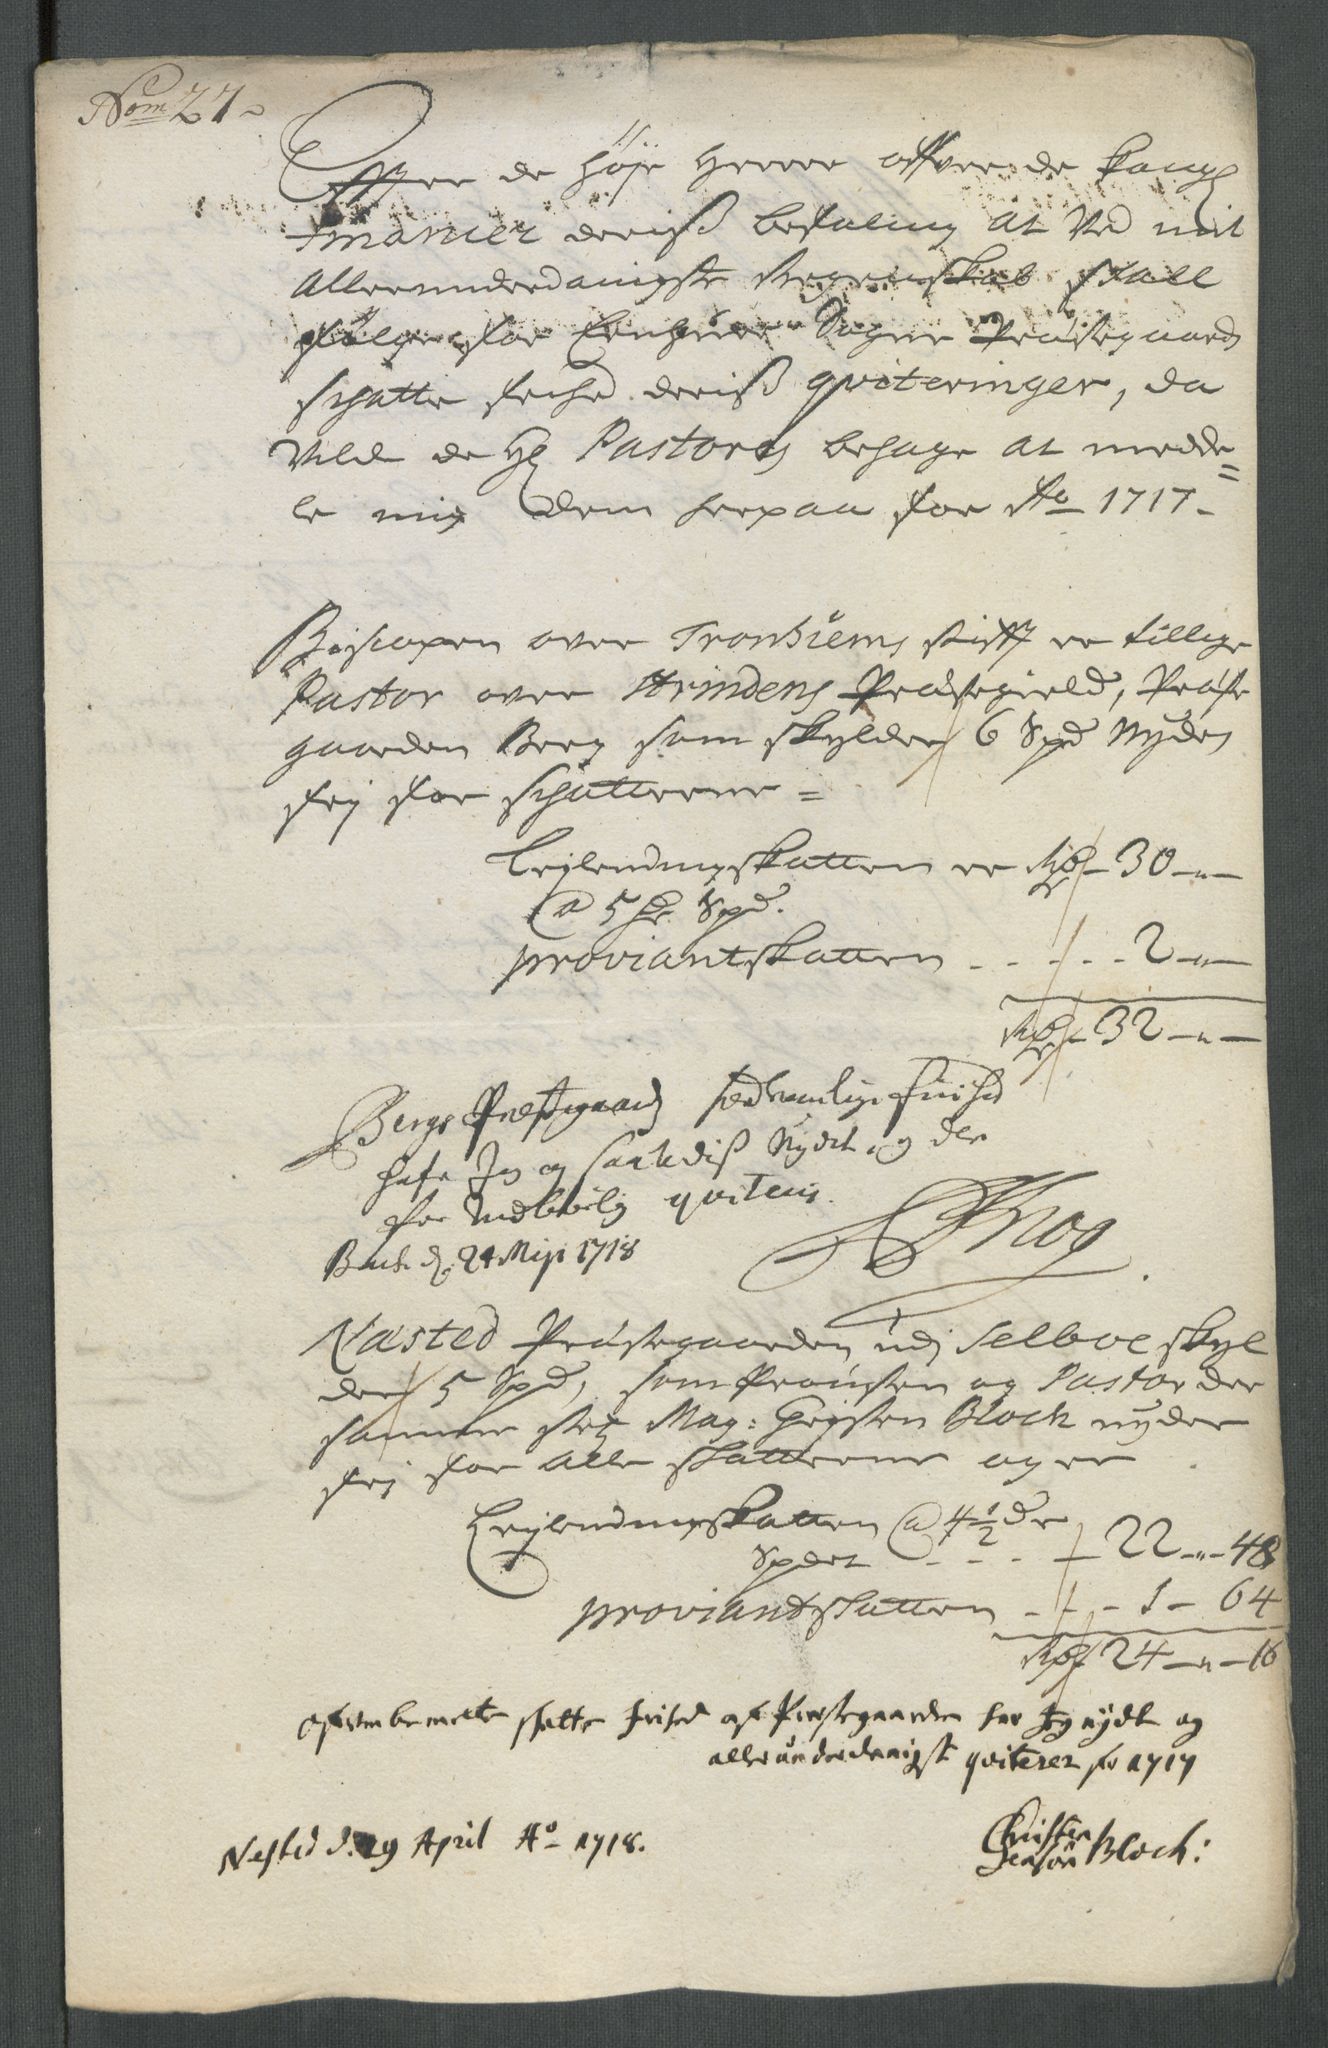 Nom 27
Efter de høje Herrer ofver de Kongl
Finantzer deriß befaling at Ved mit
allerunderdanigste Regenskab skall
følge for Sogne Præstegaards
schatte frihed deriß qviteringer, da
Vilde de Hl Pastores behage at medde=
le mig dem herpaa for Ao 1717.
Biscopen over Tronhiems stift er tillige
Pastor over Strindens Præstegield, Præste
gaarden Berg som skylder 6 Spd Nyder
frj for schatterne =
Leylendingskatten er Rdr 30 - " -
a 5 dr. Spd.
proviantskatten - - - - - 2 - " -
Rdr 32 - " -
Bergs Præstegaards sedvanlige friihed
hafr Jeg og saaledis Nydt, og der
for qviteris.
d. 24 Maji 1718
Krog
Næsted Præstegaarden udj Selboe skyl
der 5 Spd, som Prousten og Pastor der
samme sted Mag: Christen Bloch nyder
frj for alle skatterne og er
Leylendingskatten a 4 1/2 dr
Spdet - - - - 22 - " - 48
proviantskatten - - - 1 - 64
Rdr 24 - " - 16
ofvenbemelte skatte frihed af Præstegaarden har Jeg nydt og
allerunderdanigst qviterer for 1717
Nested d. 29 April Ao 1718.
Christen
Jensøn Bloch: